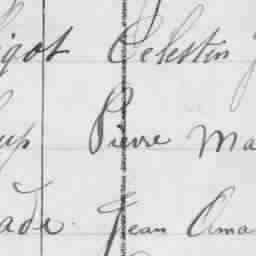 igot Celestin
up Pierre Ma
ade Jean Ama